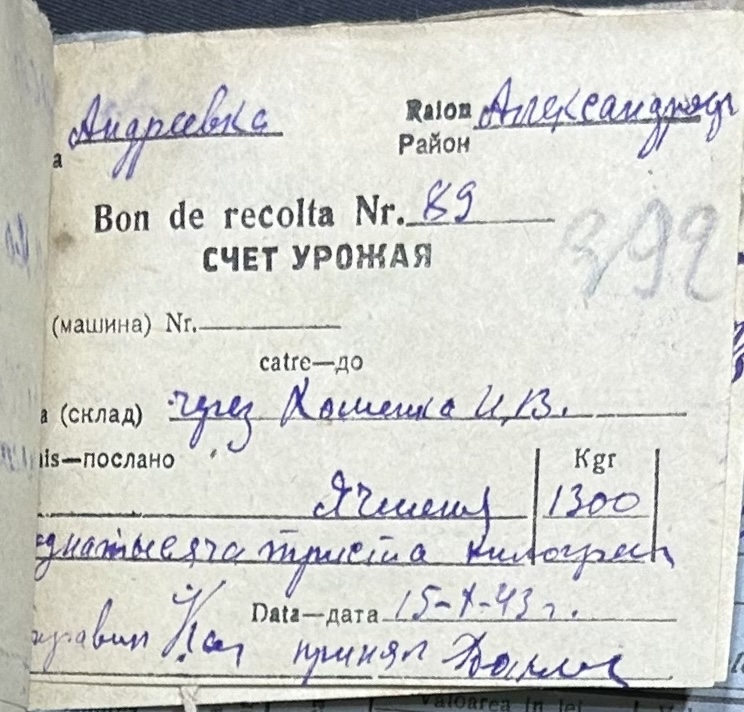 Андреевка Raion Александров
а Район
Bon de recolta Nr. 89
СЧЕТ УРОЖАЯ
392
(машина) Nr.
catre—до
a (склад) через Хоменко И.В.
is—послано Kgr
Ячменя 1300
однатысяча триста килограм
Data—дата 15-X-43 г.
принял
Valoarea in lei